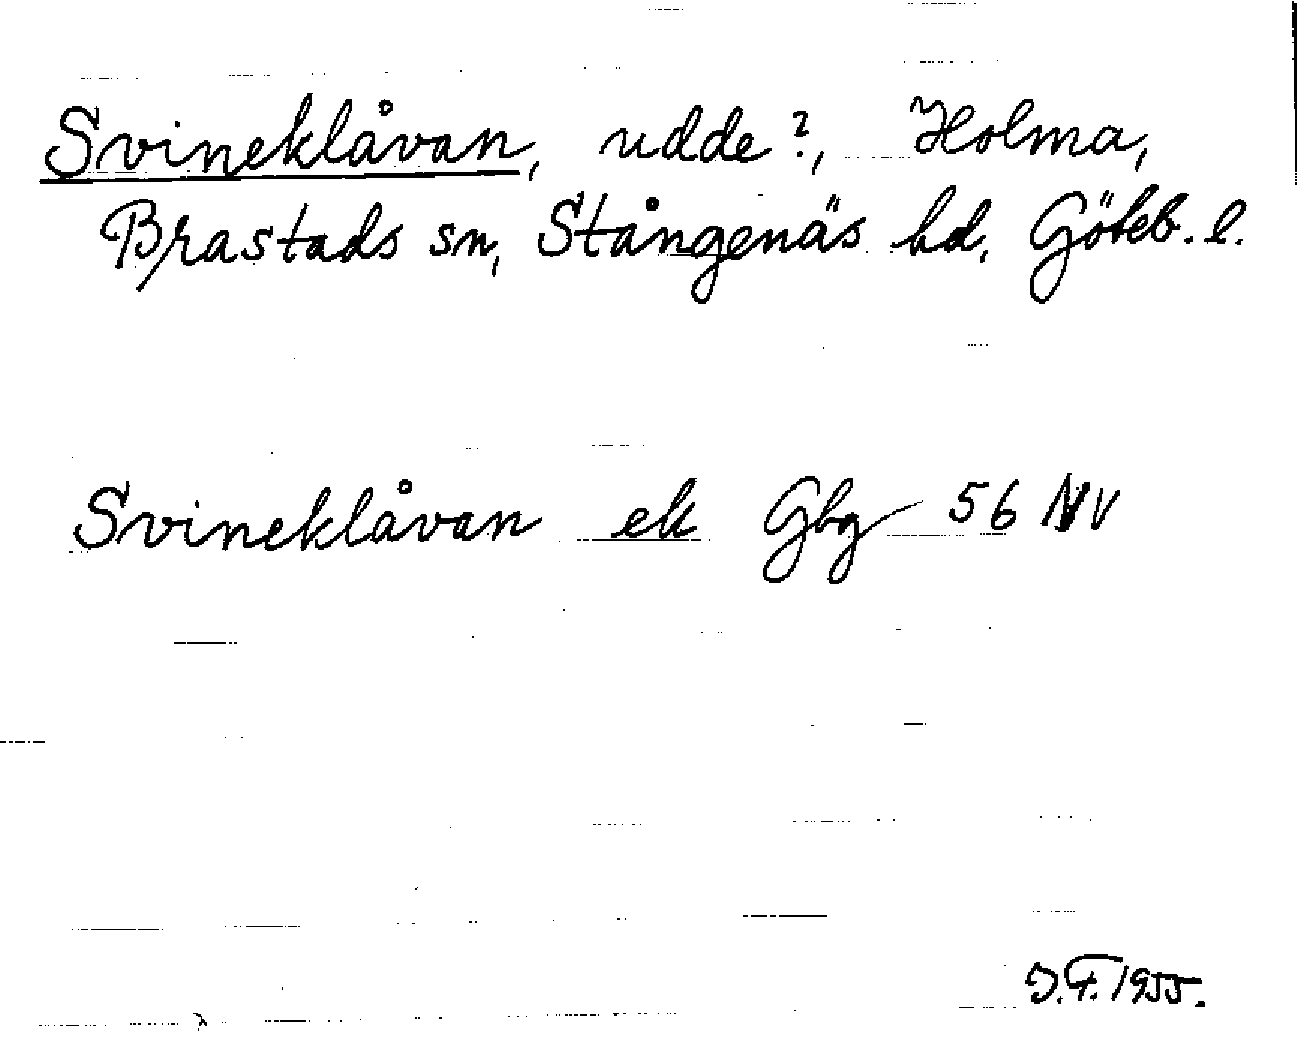 Svineklåvan, udde?, Holma,
Brastads sn, Stångenäs hd. Göteb. l.
Svineklåvan ek Gbg 56 NV
J.F. 1955.